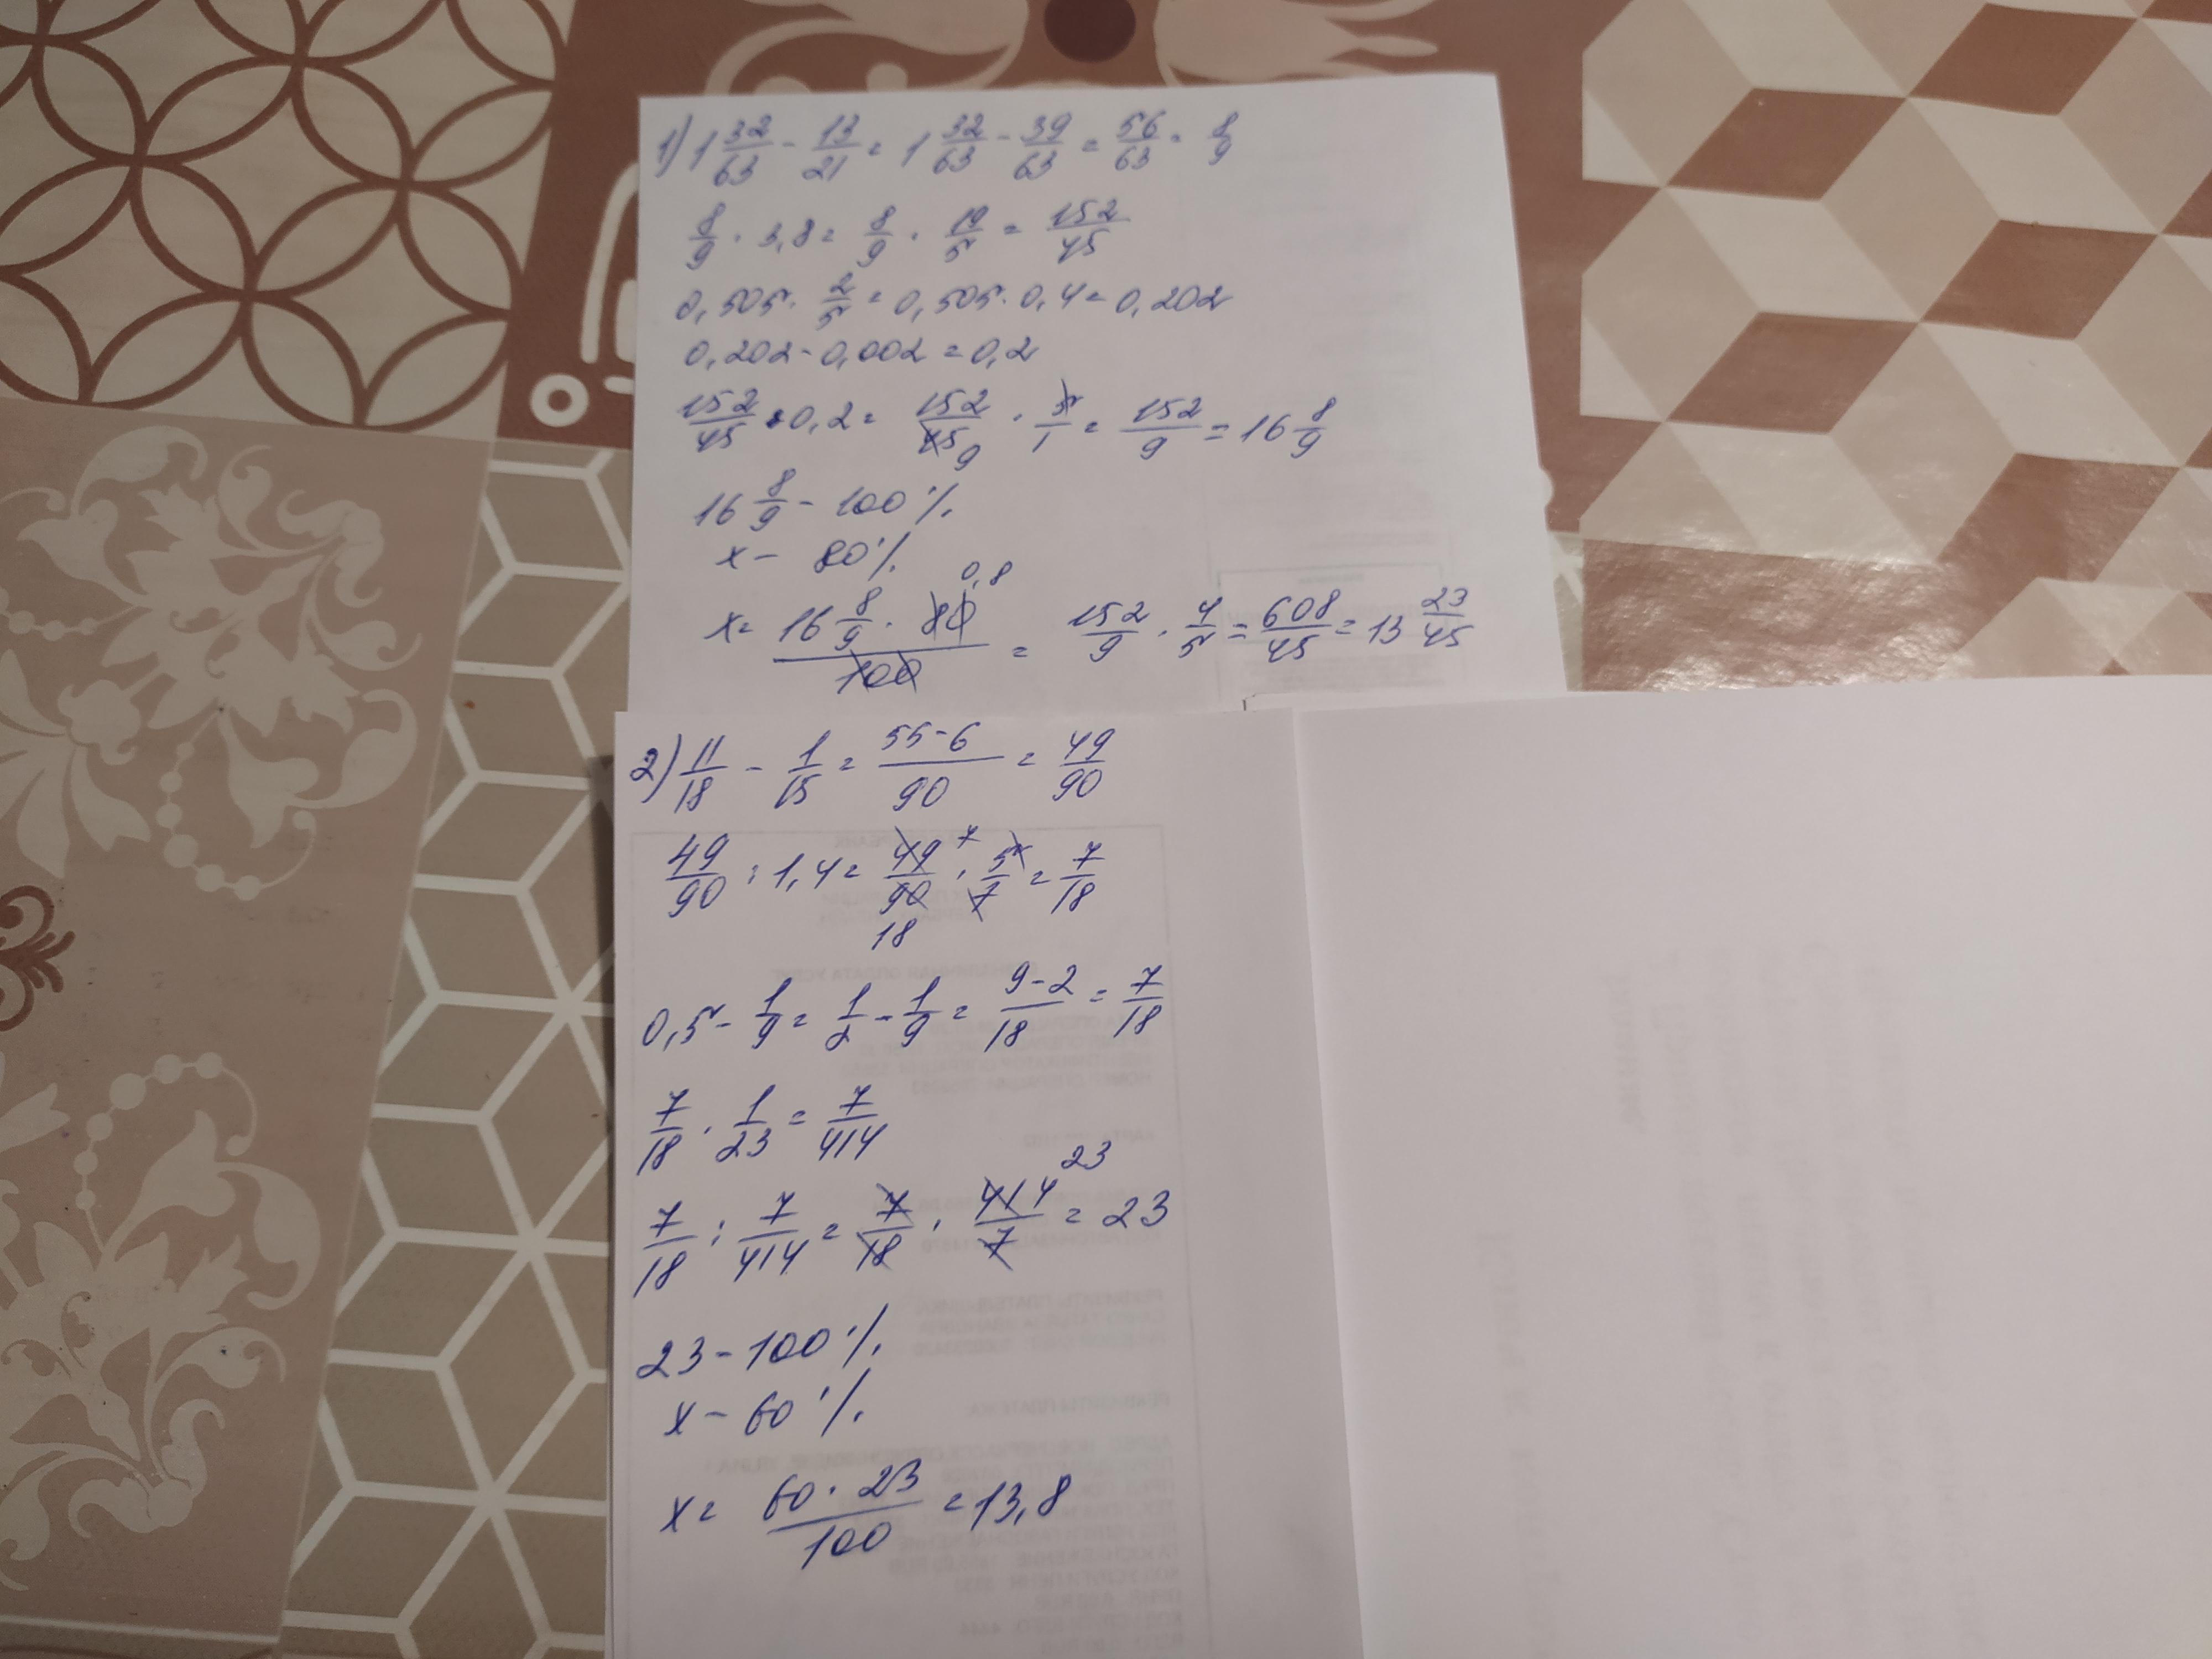 1) 1 32/63 - 13/21 = 1 32/63 - 39/63 = 56/63 = 8/9
8/9 · 3,8 = 8/9 · 19/5 = 152/45
0,505 · 2/5 = 0,505 · 0,4 = 0,202
0,202 - 0,002 = 0,2
152/45 : 0,2 = 152/45 9 · 5/1 = 152/9 = 16 8/9
16 8/9 - 100%
x - 80%
x = 16 8/9 · 80 0,8 / 100 = 152/9 · 4/5 = 608/45 = 13 23/45
2) 11/18 - 1/15 = 55-6/90 = 49/90
49/90 : 1,4 = 49 7/90 18 · 5/7 = 7/18
0,5 - 1/9 = 1/2 - 1/9 = 9-2/18 = 7/18
7/18 · 1/23 = 7/414
7/18 : 7/414 = 7/18 · 414 23/7 = 23
23 - 100%
x - 60%
x = 60 · 23/100 = 13,8